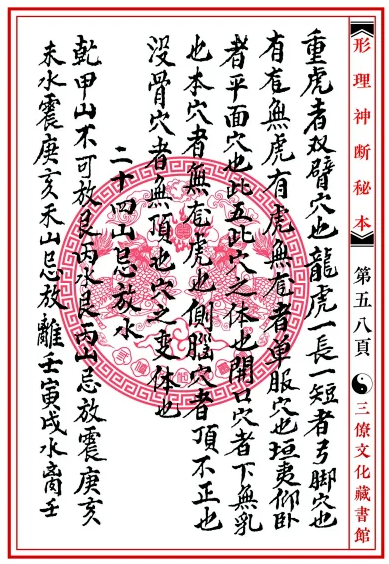 形理神断秘本 第五八頁 三僚文化藏書館
重虎者双臂穴也龍虎一長一短者弓脚穴也
有龙無虎有虎無龙者单服穴也坦夷仰卧
者平面穴也此五此穴之体也開口穴者下無乳
也本穴者無龙虎也側腦穴者頂不正也
没骨穴者無頂也穴之变体也
二十四山忌放水
乾甲山不可放艮丙水艮丙山忌放震庚亥
未水震庚亥未山忌放離壬寅戌水离壬